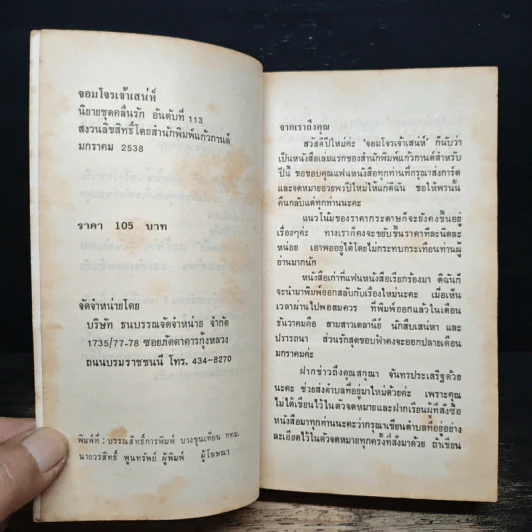 จอมโจรเจ้าเสน่ห์
นิยายชุดคลื่นรัก อันดับที่ 113
สงวนลิขสิทธิ์โดยสำนักพิมพ์แก้วกานต์
มกราคม 2538
ราคา 105 บาท
จัดจำหน่ายโดย
บริษัท ธนบรรณจัดจำหน่าย จำกัด
1735/77-78 ซอยภัตตาคารกุ้งหลวง
ถนนบรมราชชนนี โทร. 434-8270
พิมพ์ที่ : บรรณสิทธิ์การพิมพ์ บางขุนเทียน กทม.
นายวรสิทธิ์ พูนทรัพย์ ผู้พิมพ์ ผู้โฆษณา
จากเราถึงคุณ
สวัสดีปีใหม่ค่ะ 'จอมโจรเจ้าเสน่ห์' ก็นับว่า
เป็นหนังสือเล่มแรกของสำนักพิมพ์แก้วกานต์สำหรับ
ปีนี้ ขอขอบคุณแฟนหนังสือทุกท่านที่กรุณาส่งการ์ด
และจดหมายอวยพรปีใหม่ให้แก่ดิฉัน ขอให้พรนั้น
คืนกลับแด่ทุกท่านนะคะ
แนวโน้มของราคากระดาษก็จะยังคงขึ้นอยู่
เรื่อยๆค่ะ ทางเราก็คงจะขยับขึ้นราคาทีละนิดละ
หน่อย เอาพออยู่ได้โดยไม่กระทบกระเทือนท่านผู้
อ่านมากนัก
หนังสือเก่าที่แฟนหนังสือเรียกร้องมา ดิฉันก็
จะนำมาพิมพ์ออกสลับกับเรื่องใหม่นะคะ เมื่อเห็น
เวลาผ่านไปพอสมควร ที่พิมพ์ออกแล้วในเดือน
ธันวาคมคือ สามสาวเดลานีย์ นักสืบเสน่หา และ
ปรารถนา ส่วนรักสุดขอบฟ้าคงจะออกปลายเดือน
มกราคมค่ะ
ฝากข่าวถึงคุณสกุณา จันทรประเสริฐด้วย
นะคะ ช่วยส่งตำบลที่อยู่มาใหม่ด้วยค่ะ เพราะคุณ
ไม่ได้เขียนไว้ในตัวจดหมายและฝากเรียนผู้ที่สั่งซื้อ
หนังสือมาทุกท่านนะคะว่ากรุณาเขียนตำบลที่อยู่อย่าง
ละเอียดไว้ในตัวจดหมายทุกครั้งที่สั่งมาด้วย ถ้าเขียน